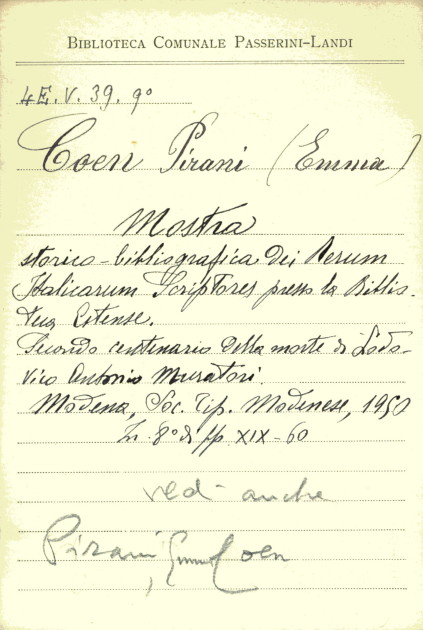 BIBLIOTECA COMUNALE PASSERINI-LANDI
4E.V.39.9°
Coen Pirani (Emma)
Mostra
storico-bibliografica dei Rerum
Italicarum Scriptores presso la Biblio-
teca Estense.
Secondo centenario della morte di Lodo-
vico Antonio Muratori.
Modena, Soc. Tip. Modenese, 1950
In 8° di pp XIX-60
vedi anche
Pirani, Emma Coen